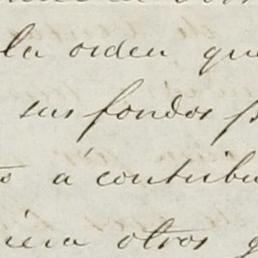 la orden que
sus fondos p
o á contribu
iera otros g